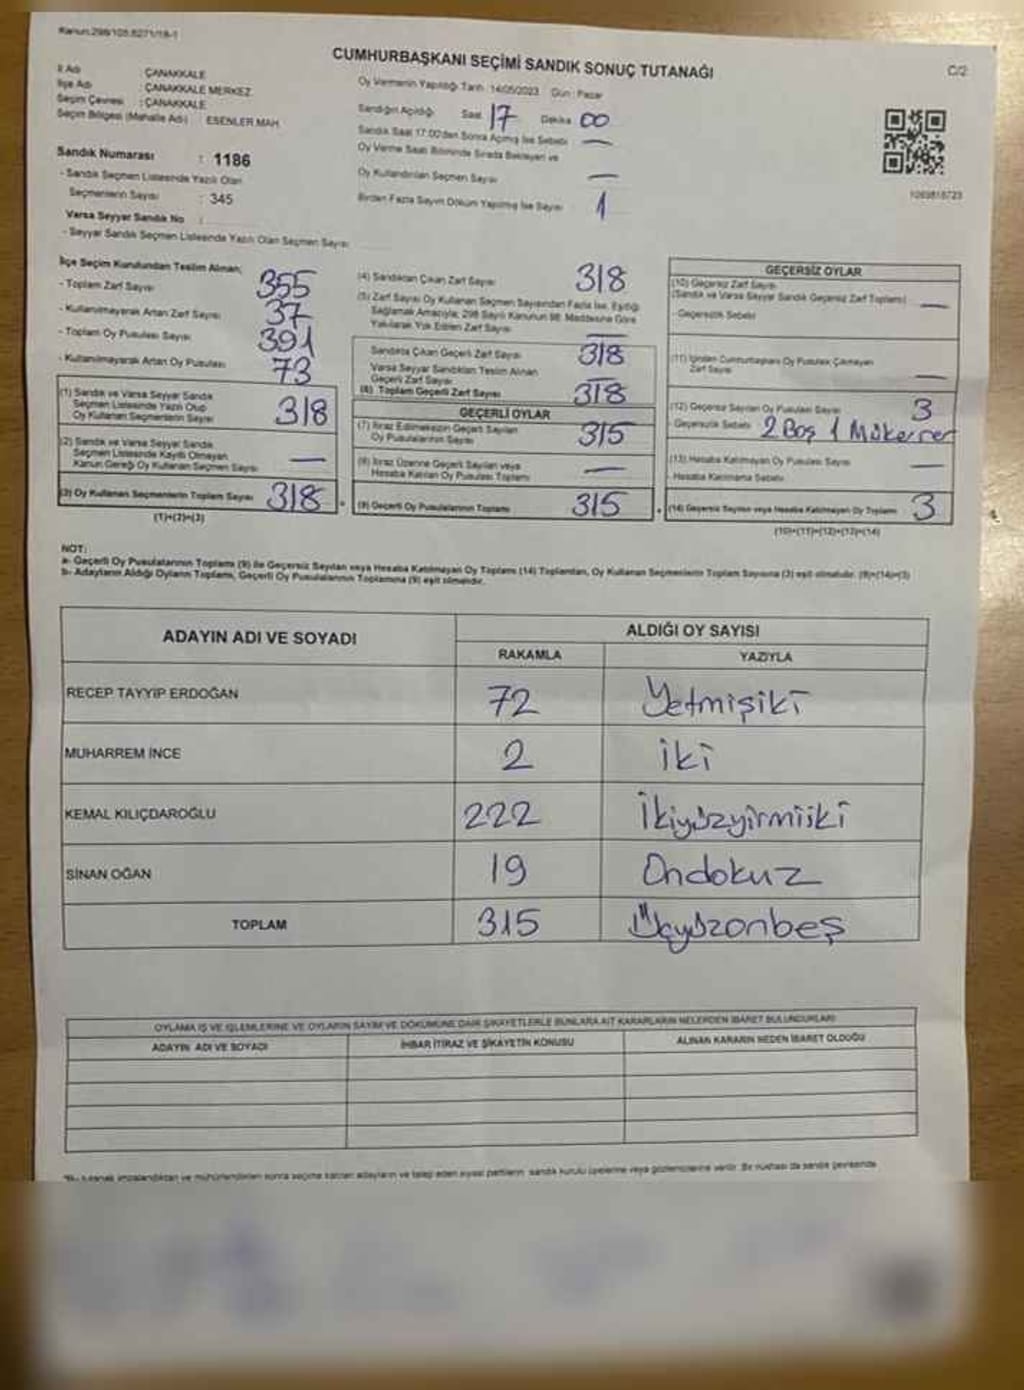 Kanun:298/105,6271/18-1
CUMHURBAŞKANI SEÇİMİ SANDIK SONUÇ TUTANAĞI
C/2
İl Adı : ÇANAKKALE
İlçe Adı : ÇANAKKALE MERKEZ
Seçim Çevresi : ÇANAKKALE
Seçim Bölgesi (Mahalle Adı) : ESENLER MAH.
Sandık Numarası : 1186
- Sandık Seçmen Listesinde Yazılı Olan
Seçmenlerin Sayısı : 345
Varsa Seyyar Sandık No :
- Seyyar Sandık Seçmen Listesinde Yazılı Olan Seçmen Sayısı
Oy Vermenin Yapıldığı Tarih : 14/05/2023 Gün : Pazar
Sandığın Açıldığı Saat 17 Dakika 00
Sandık Saat 17:00'den Sonra Açılmış İse Sebebi —
Oy Verme Saati Bitiminde Sırada Bekleyen ve
Oy Kullandırılan Seçmen Sayısı —
Birden Fazla Sayım Döküm Yapılmış İse Sayısı 1
1069818723
İlçe Seçim Kurulundan Teslim Alınan;
- Toplam Zarf Sayısı 355
- Kullanılmayarak Artan Zarf Sayısı 37
- Toplam Oy Pusulası Sayısı 391
- Kullanılmayarak Artan Oy Pusulası 73
(1) Sandık ve Varsa Seyyar Sandık
Seçmen Listesinde Yazılı Olup
Oy Kullanan Seçmenlerin Sayısı 318
(2) Sandık ve Varsa Seyyar Sandık
Seçmen Listesinde Kayıtlı Olmayan
Kanun Gereği Oy Kullanan Seçmen Sayısı —
(3) Oy Kullanan Seçmenlerin Toplam Sayısı 318
(1)+(2)=(3)
(4) Sandıktan Çıkan Zarf Sayısı 318
(5) Zarf Sayısı Oy Kullanan Seçmen Sayısından Fazla İse, Eşitliği
Sağlamak Amacıyla; 298 Sayılı Kanunun 98. Maddesine Göre
Yakılarak Yok Edilen Zarf Sayısı —
Sandıkta Çıkan Geçerli Zarf Sayısı 318
Varsa Seyyar Sandıktan Teslim Alınan
Geçerli Zarf Sayısı —
(6) Toplam Geçerli Zarf Sayısı 318
GEÇERLİ OYLAR
(7) İtiraz Edilmeksizin Geçerli Sayılan
Oy Pusulalarının Sayısı 315
(8) İtiraz Üzerine Geçerli Sayılan veya
Hesaba Katılan Oy Pusulası Toplamı —
(9) Geçerli Oy Pusulalarının Toplamı 315
GEÇERSİZ OYLAR
(10) Geçersiz Zarf Sayısı
(Sandık ve Varsa Seyyar Sandık Geçersiz Zarf Toplamı) —
- Geçersizlik Sebebi
(11) İçinden Cumhurbaşkanı Oy Pusulası Çıkmayan
Zarf Sayısı —
(12) Geçersiz Sayılan Oy Pusulası Sayısı 3
- Geçersizlik Sebebi 2 Boş 1 Mükerrer
(13) Hesaba Katılmayan Oy Pusulası Sayısı —
- Hesaba Katılmama Sebebi
(14) Geçersiz Sayılan veya Hesaba Katılmayan Oy Toplamı 3
(10)+(11)+(12)+(13)=(14)
NOT:
a- Geçerli Oy Pusulalarının Toplamı (9) ile Geçersiz Sayılan veya Hesaba Katılmayan Oy Toplamı (14) Toplamları, Oy Kullanan Seçmenlerin Toplam Sayısına (3) eşit olmalıdır. (9)+(14)=(3)
b- Adayların Aldığı Oyların Toplamı, Geçerli Oy Pusulalarının Toplamına (9) eşit olmalıdır.
ADAYIN ADI VE SOYADI ALDIĞI OY SAYISI
RAKAMLA YAZIYLA
RECEP TAYYİP ERDOĞAN 72 Yetmişiki
MUHARREM İNCE 2 iki
KEMAL KILIÇDAROĞLU 222 İkiyüzyirmiiki
SİNAN OĞAN 19 Ondokuz
TOPLAM 315 Üçyüzonbeş
OYLAMA İŞ VE İŞLEMLERİNE VE OYLARIN SAYIM VE DÖKÜMÜNE DAİR ŞİKAYETLERLE BUNLARA AİT KARARLARIN NELERDEN İBARET BULUNDUKLARI
ADAYIN ADI VE SOYADI İHBAR İTİRAZ VE ŞİKAYETİN KONUSU ALINAN KARARIN NEDEN İBARET OLDUĞU
tutanak imzalandıktan ve mühürlendikten sonra seçime katılan adayların ve talep eden siyasi partilerin sandık kurulu üyelerine veya gözlemcilerine verilir. Bir nüshası da sandık çevresinde